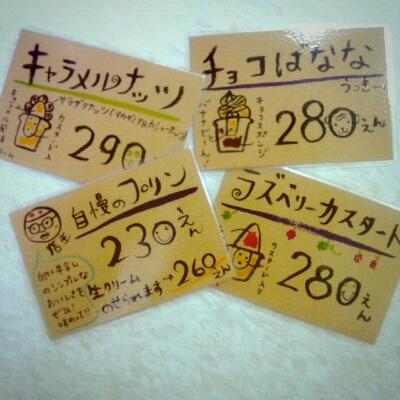 キャラメルナッツ
290
カスタード入
チョコばなな
うっきー
チョコスポンジ
バナナどーん!
280えん
店主
自慢のプリン
230えん
卵・牛乳
のシンプルな
おいしさを
ぜひ!
味わって!!
生クリーム
のせられます→260えん
ラズベリーカスタード
カスタード入り
280えん